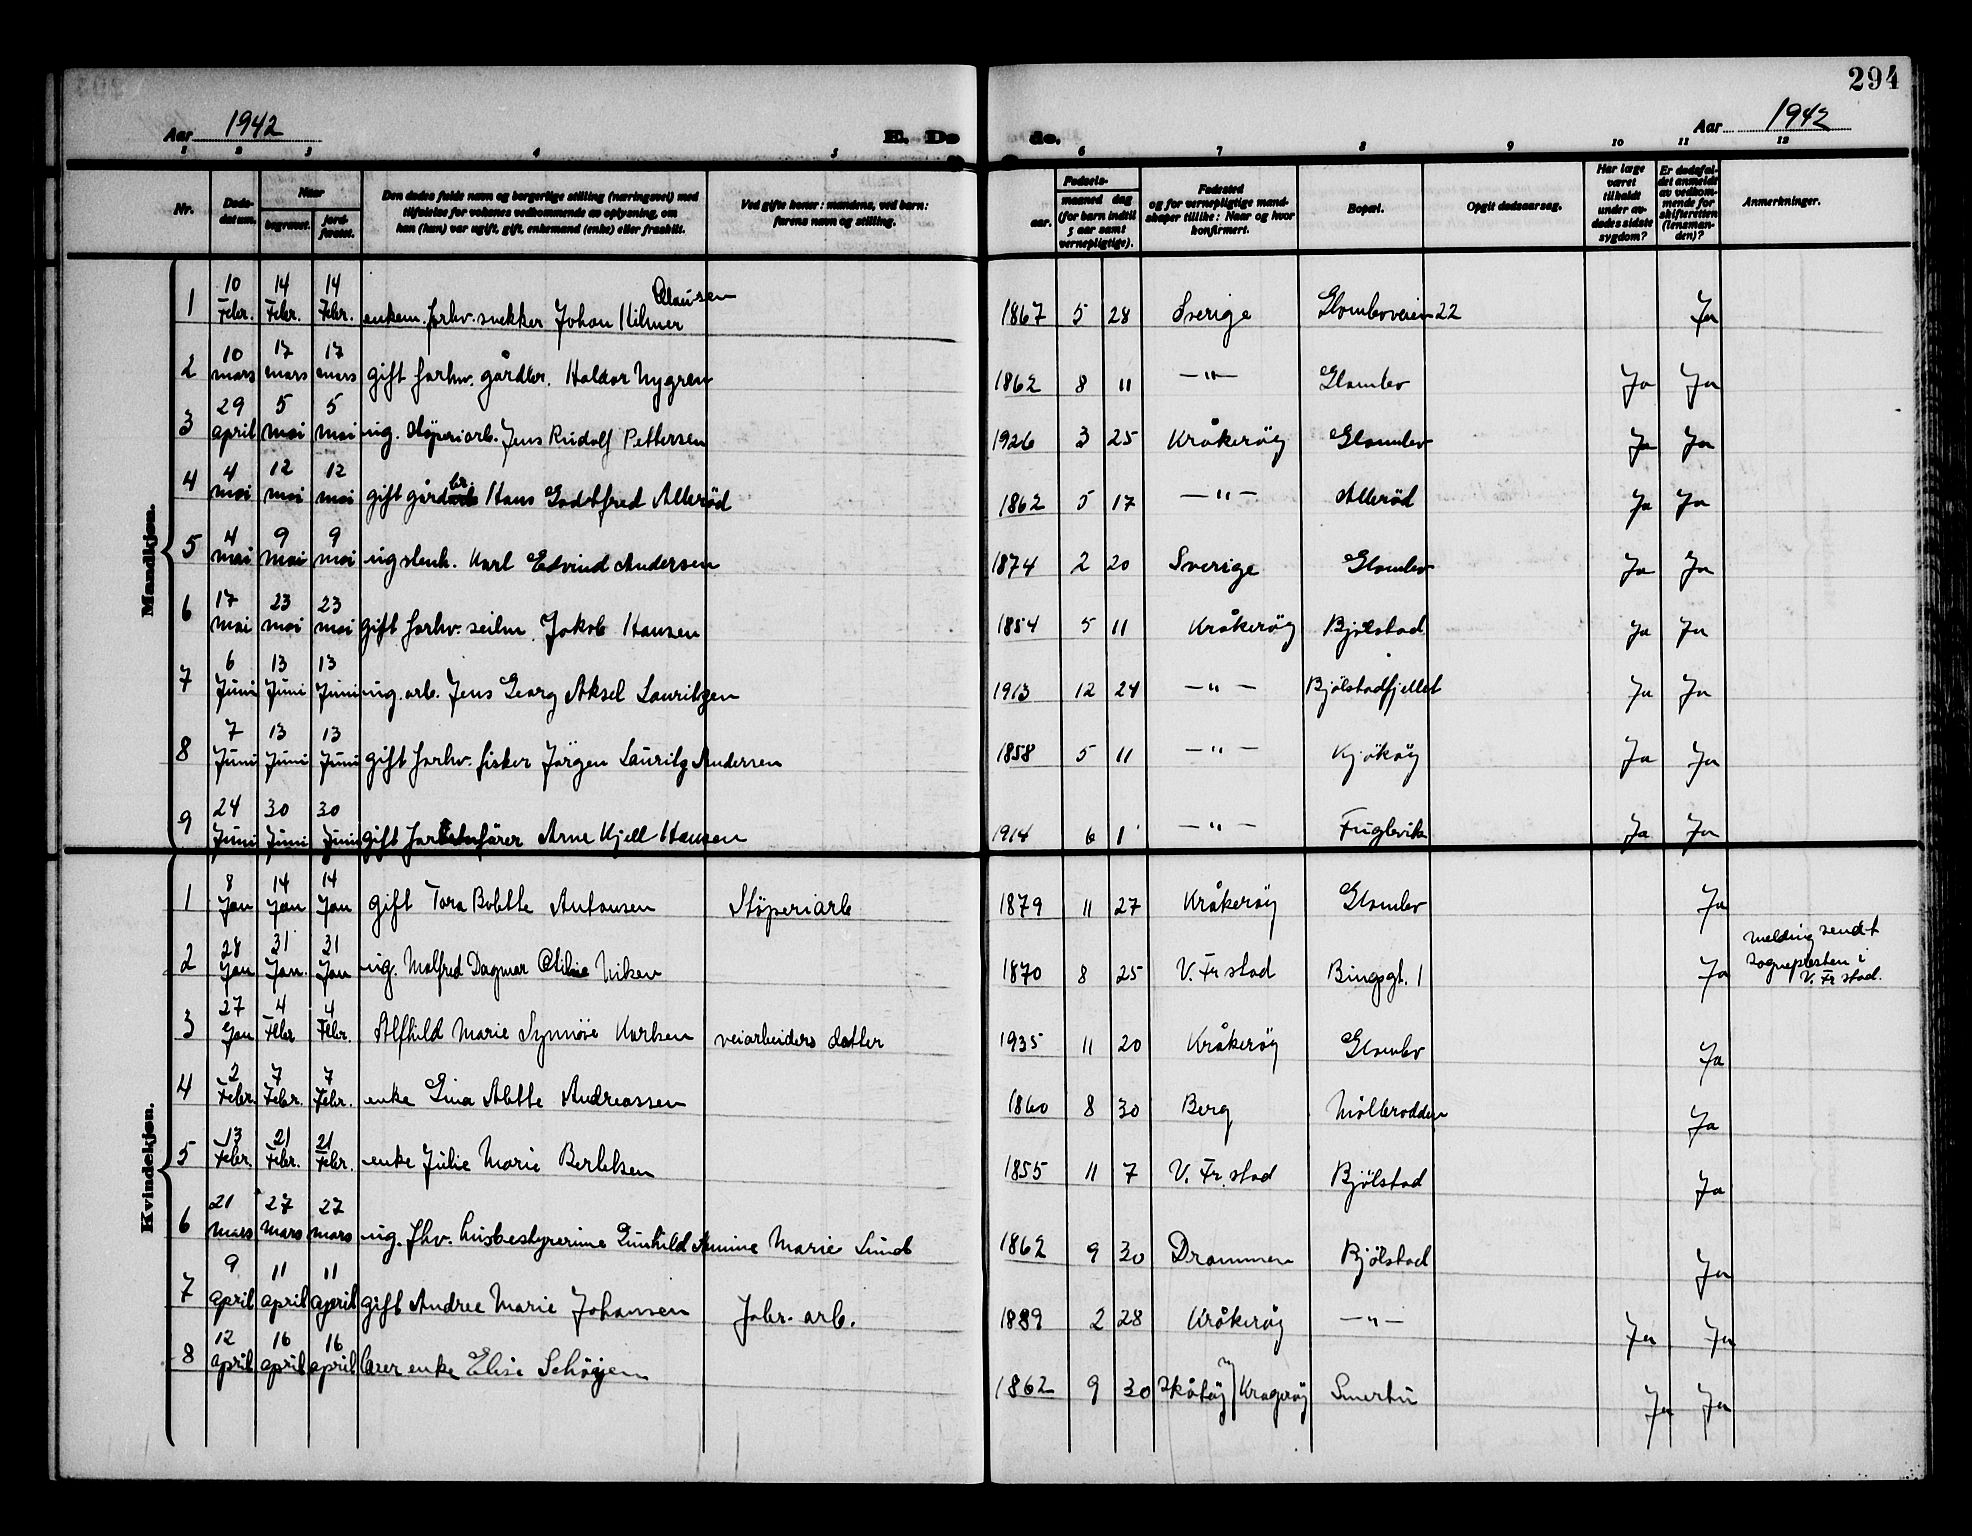 294
Aar 1942
E. Dø
de.
Aar 1942
1 2 3 4 5 6 7 8 9 10 11 12
Nr.
Døds-
datum.
Naar
begravet.
jord-
fæstet.
Den dødes fulde navn og borgerlige stilling (næringsvei) med
tilføielse for voksnes vedkommende av oplysning, om
han (hun) var ugift, gift, enkemand (enke) eller fraskilt.
Ved gifte koner: mandens, ved barn:
farens navn og stilling.
Fødsels-
aar.
maaned dag
(for barn indtil
5 aar samt
vernepligtige).
Fødested
og for vernepligtige mand-
skaper tillike: Naar og hvor
konfirmert.
Bopæl.
Opgit dødsaarsag.
Har læge
været
tilkaldt
under av-
dødes sidste
sygdom?
Er dødsfal-
det anmeldt
av vedkom-
mende for
skifteretten
(lensman-
den)?
Anmerkninger.
Mandkjøn.
1 10 Febr. 14 Febr. 14 Febr. enkem. forhv. snekker Johan Hilmer Clausen 1867 5 28 Sverige Glomboveien 22 Ja
2 10 mars 17 mars 17 mars gift forhv. gårdbr. Haldor Nygren 1862 8 11 —"— Glombo Ja Ja
3 29 april 5 mai 5 mai ug. støperiarb. Jens Rudolf Pettersen 1926 3 25 Kråkerøy Glombo Ja Ja
4 4 mai 12 mai 12 mai gift gårdbr. Hans Godtfred Allerød 1862 5 17 —"— Allerød Ja Ja
5 4 mai 9 mai 9 mai ug stenh. Karl Edvind Andersen 1874 2 20 Sverige Glombo Ja Ja
6 17 mai 23 mai 23 mai gift forhv. seilm. Jakob Hansen 1854 5 11 Kråkerøy Bjølstad Ja Ja
7 6 Juni 13 Juni 13 Juni ug. arb. Jens Georg Aksel Lauritzen 1913 12 24 —"— Bjølstadfjellet Ja Ja
8 7 Juni 13 Juni 13 Juni gift forhv. fisker Jørgen Lauritz Andersen 1858 5 11 —"— Kjøkøy Ja Ja
9 24 Juni 30 Juni 30 Juni gift Arne Kjell Hansen 1914 6 1 —"— Fuglevik Ja Ja
Kvindekjøn.
1 8 Jan 14 Jan 14 Jan gift Tora Bolette Antonsen Støperiarb 1879 11 27 Kråkerøy Glombo Ja
2 28 Jan 31 Jan. 31 Jan ug. Malfred Dagmar Otilie Nilsen 1870 8 25 V. Fr stad Bingsgt. 1 Ja melding sendt
sognepresten i
V. Fr stad.
3 27 Jan 4 Febr 4 Febr. Alfhild Marie Synnøve Karlsen veiarbeiders datter 1935 11 20 Kråkerøy Glombo Ja
4 2 Febr. 7 Febr. 7 Febr. enke Gina Alette Andreassen 1860 8 30 Berg Møllerodden Ja
5 13 Febr. 21 Febr. 21 Febr. enke Julie Marie Bertelsen 1855 11 7 V. Fr. stad Bjølstad Ja
6 21 mars 27 mars 27 mars ug. fhv. husbestyrerinne Gunhild Amine Marie Lund 1862 9 30 Drammen Bjølstad Ja
7 9 april 11 april 11 april gift Andree Marie Johansen Fabr. arb. 1889 2 28 Kråkerøy —"— Ja Ja
8 12 april 16 april 16 april lærer enke Elise Schøyen 1862 9 30 Skåtøy Kragerøy Smertu Ja Ja